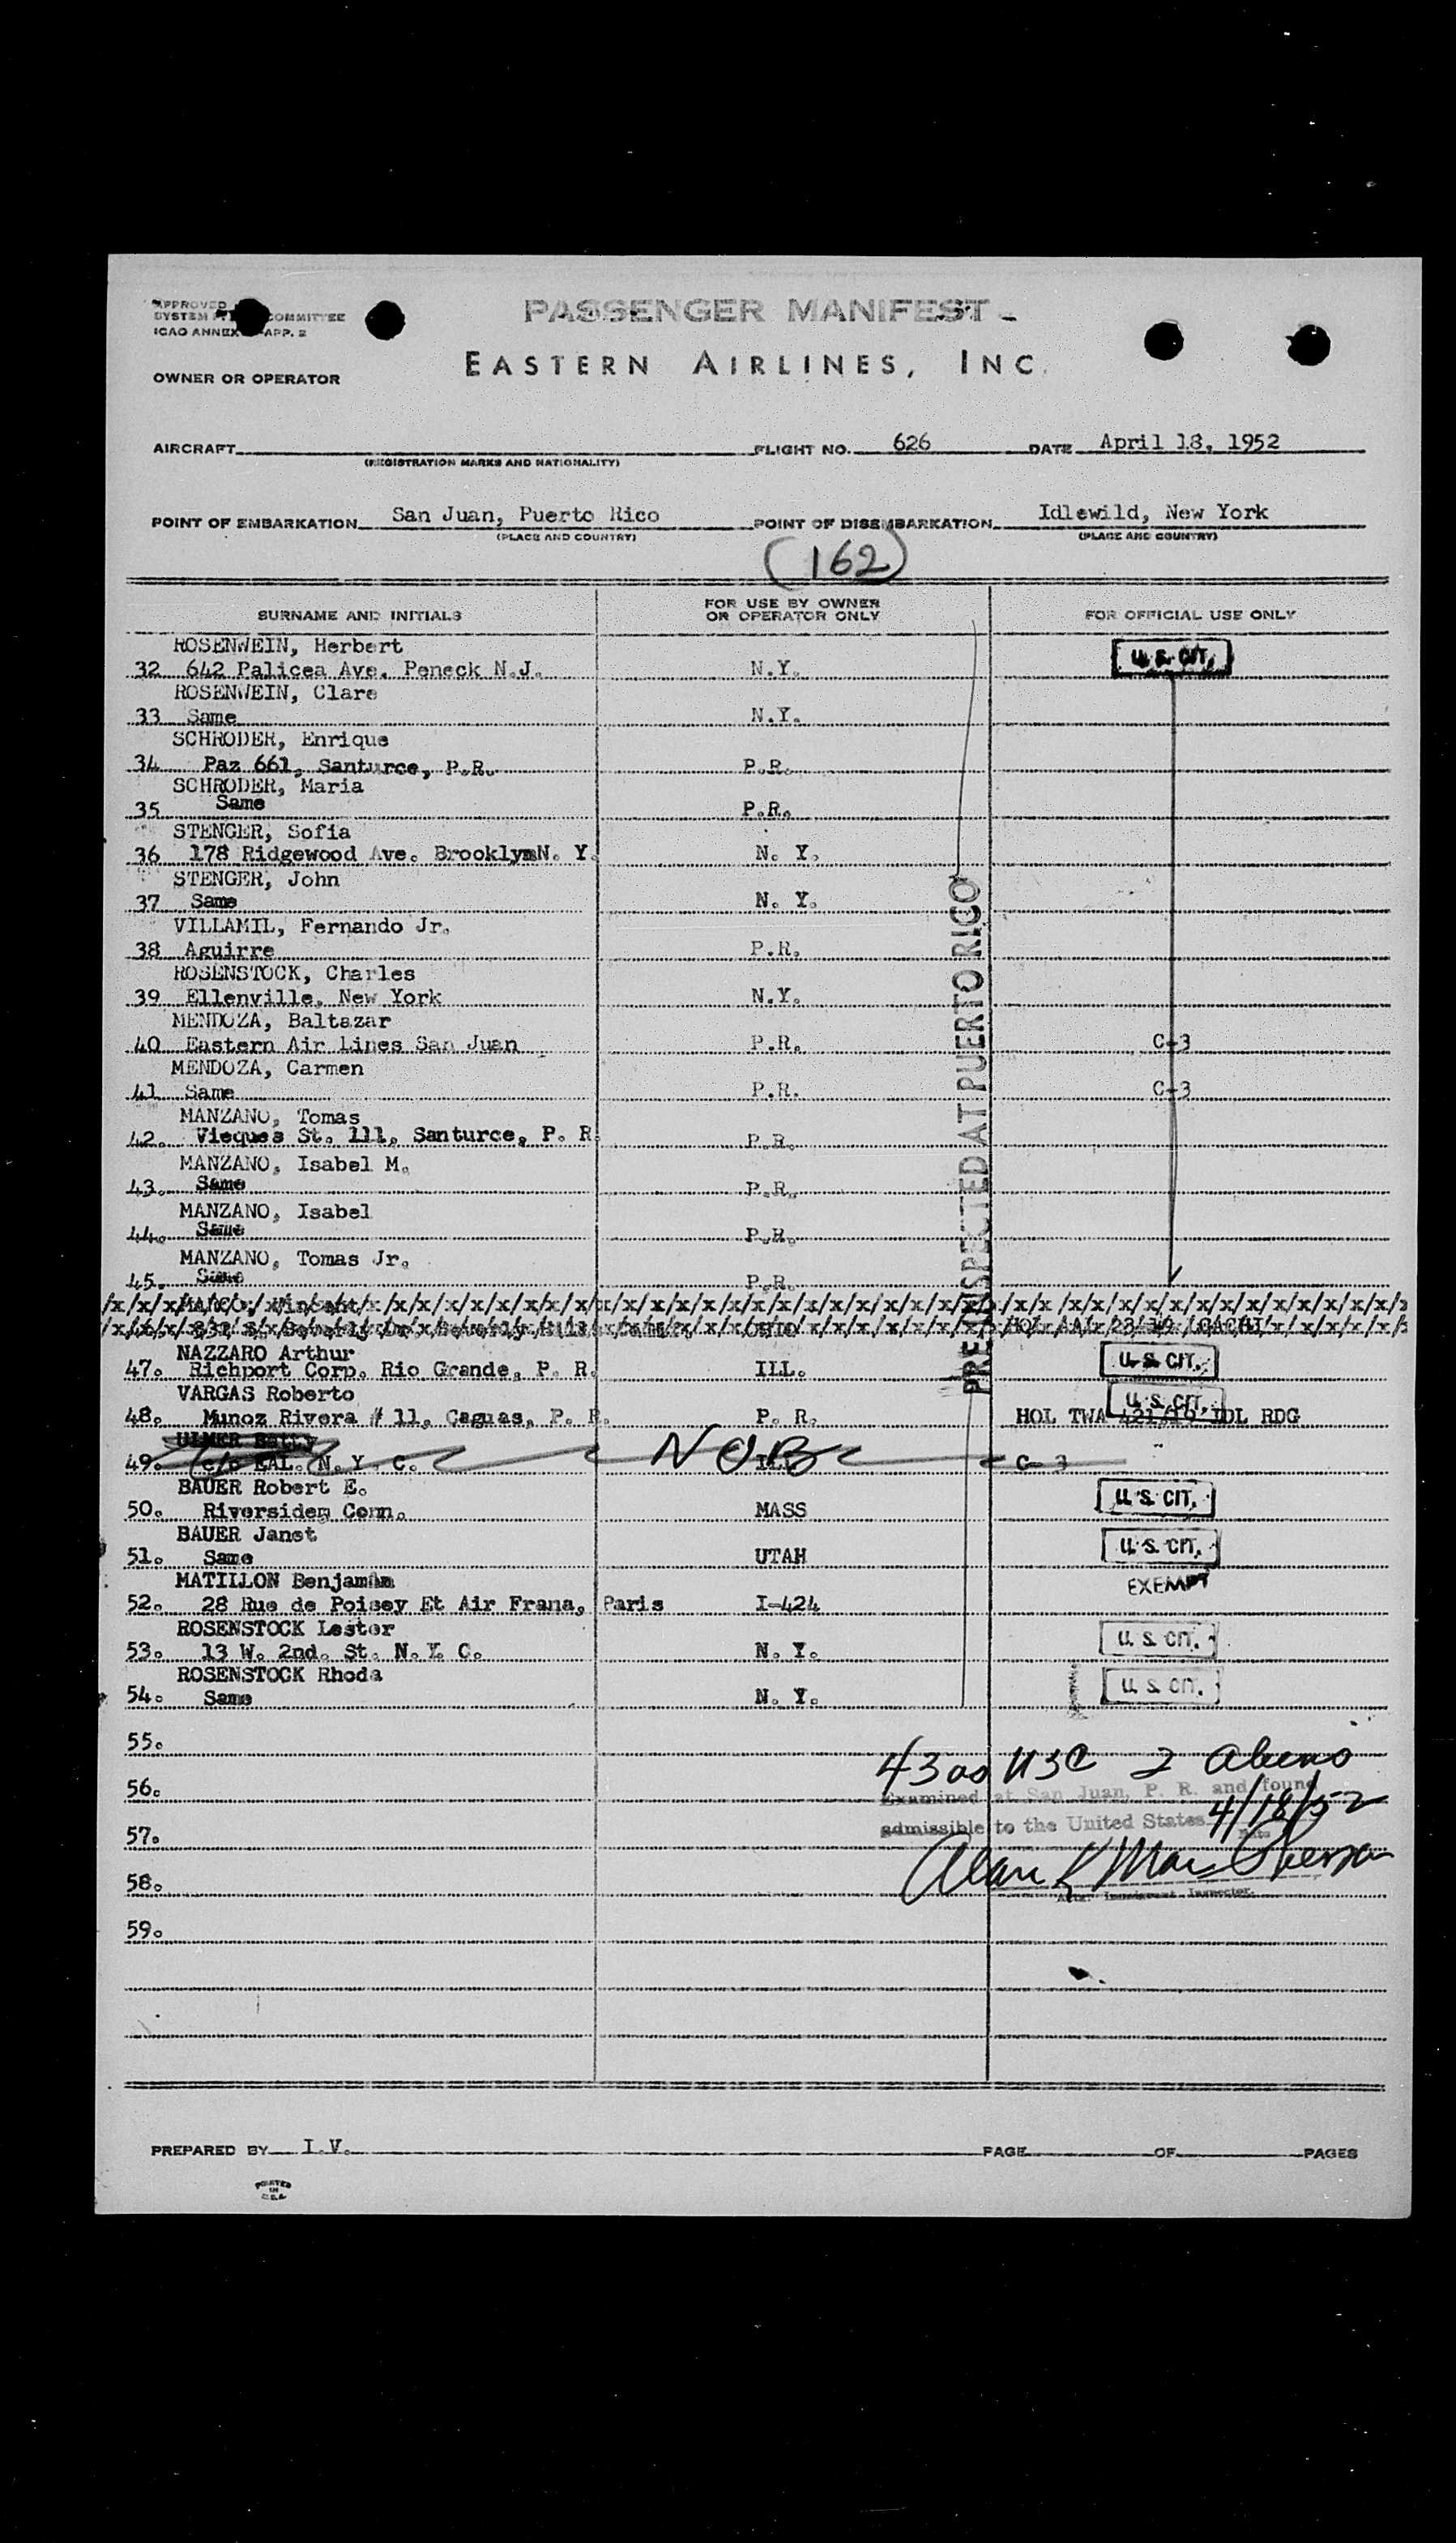 APPROVED
SYSTEM COMMITTEE
ICAO ANNEX APP. 2
PASSENGER MANIFEST
EASTERN AIRLINES, INC.
OWNER OR OPERATOR
AIRCRAFT FLIGHT NO. 626 DATE April 18, 1952
(REGISTRATION MARKS AND NATIONALITY)
POINT OF EMBARKATION San Juan, Puerto Rico POINT OF DISEMBARKATION Idlewild, New York
(PLACE AND COUNTRY) (PLACE AND COUNTRY)
(162)
SURNAME AND INITIALS FOR USE BY OWNER OR OPERATOR ONLY FOR OFFICIAL USE ONLY
ROSENWEIN, Herbert
32 642 Palicea Ave. Peneck N.J. N.Y. U.S. CIT.
ROSENWEIN, Clare
33 Same N.Y.
SCHRODER, Enrique
34 Paz 661, Santurce, P.R. P.R.
SCHRODER, Maria
35 Same P.R.
STENGER, Sofia
36 178 Ridgewood Ave. Brooklym N. Y. N. Y.
STENGER, John
37 Same N. Y.
VILLAMIL, Fernando Jr.
38 Aguirre P.R.
ROSENSTOCK, Charles
39 Ellenville, New York N.Y.
MENDOZA, Baltazar
40 Eastern Air Lines San Juan P.R. C-3
MENDOZA, Carmen
41 Same P.R. C-3
MANZANO, Tomas
42. Vieques St. 111, Santurce, P. R. P.R.
MANZANO, Isabel M.
43. Same P.R.
MANZANO, Isabel
44. Same P.R.
MANZANO, Tomas Jr.
45. Same P.R.
PRE-INSPECTED AT PUERTO RICO
NAZZARO Arthur
47. Richport Corp. Rio Grande, P. R. ILL. U.S. CIT.
VARGAS Roberto
48. Munoz Rivera # 11, Caguas, P. R. P. R. U.S. CIT. HOL TWA IDL RDG
ULMER Betty
49. c/o EAL. N. Y. C. NOB C-3
BAUER Robert E.
50. Riversidem Conn. MASS U.S. CIT.
BAUER Janet
51. Same UTAH U.S. CIT.
MATILLON Benjamin EXEMPT
52. 28 Rue de Poisey Et Air Frana, Paris I-424
ROSENSTOCK Lester
53. 13 W. 2nd. St. N. Y. C. N. Y. U.S. CIT.
ROSENSTOCK Rhoda
54. Same N. Y. U.S. CIT.
55.
43 as USC 2 aliens
56. Examined at San Juan, P. R. and found
57. admissible to the United States 4/18/52
Date
58.
Immigrant Inspector.
59.
PREPARED BY I.V. PAGE OF PAGES
PRINTED
IN
U.S.A.